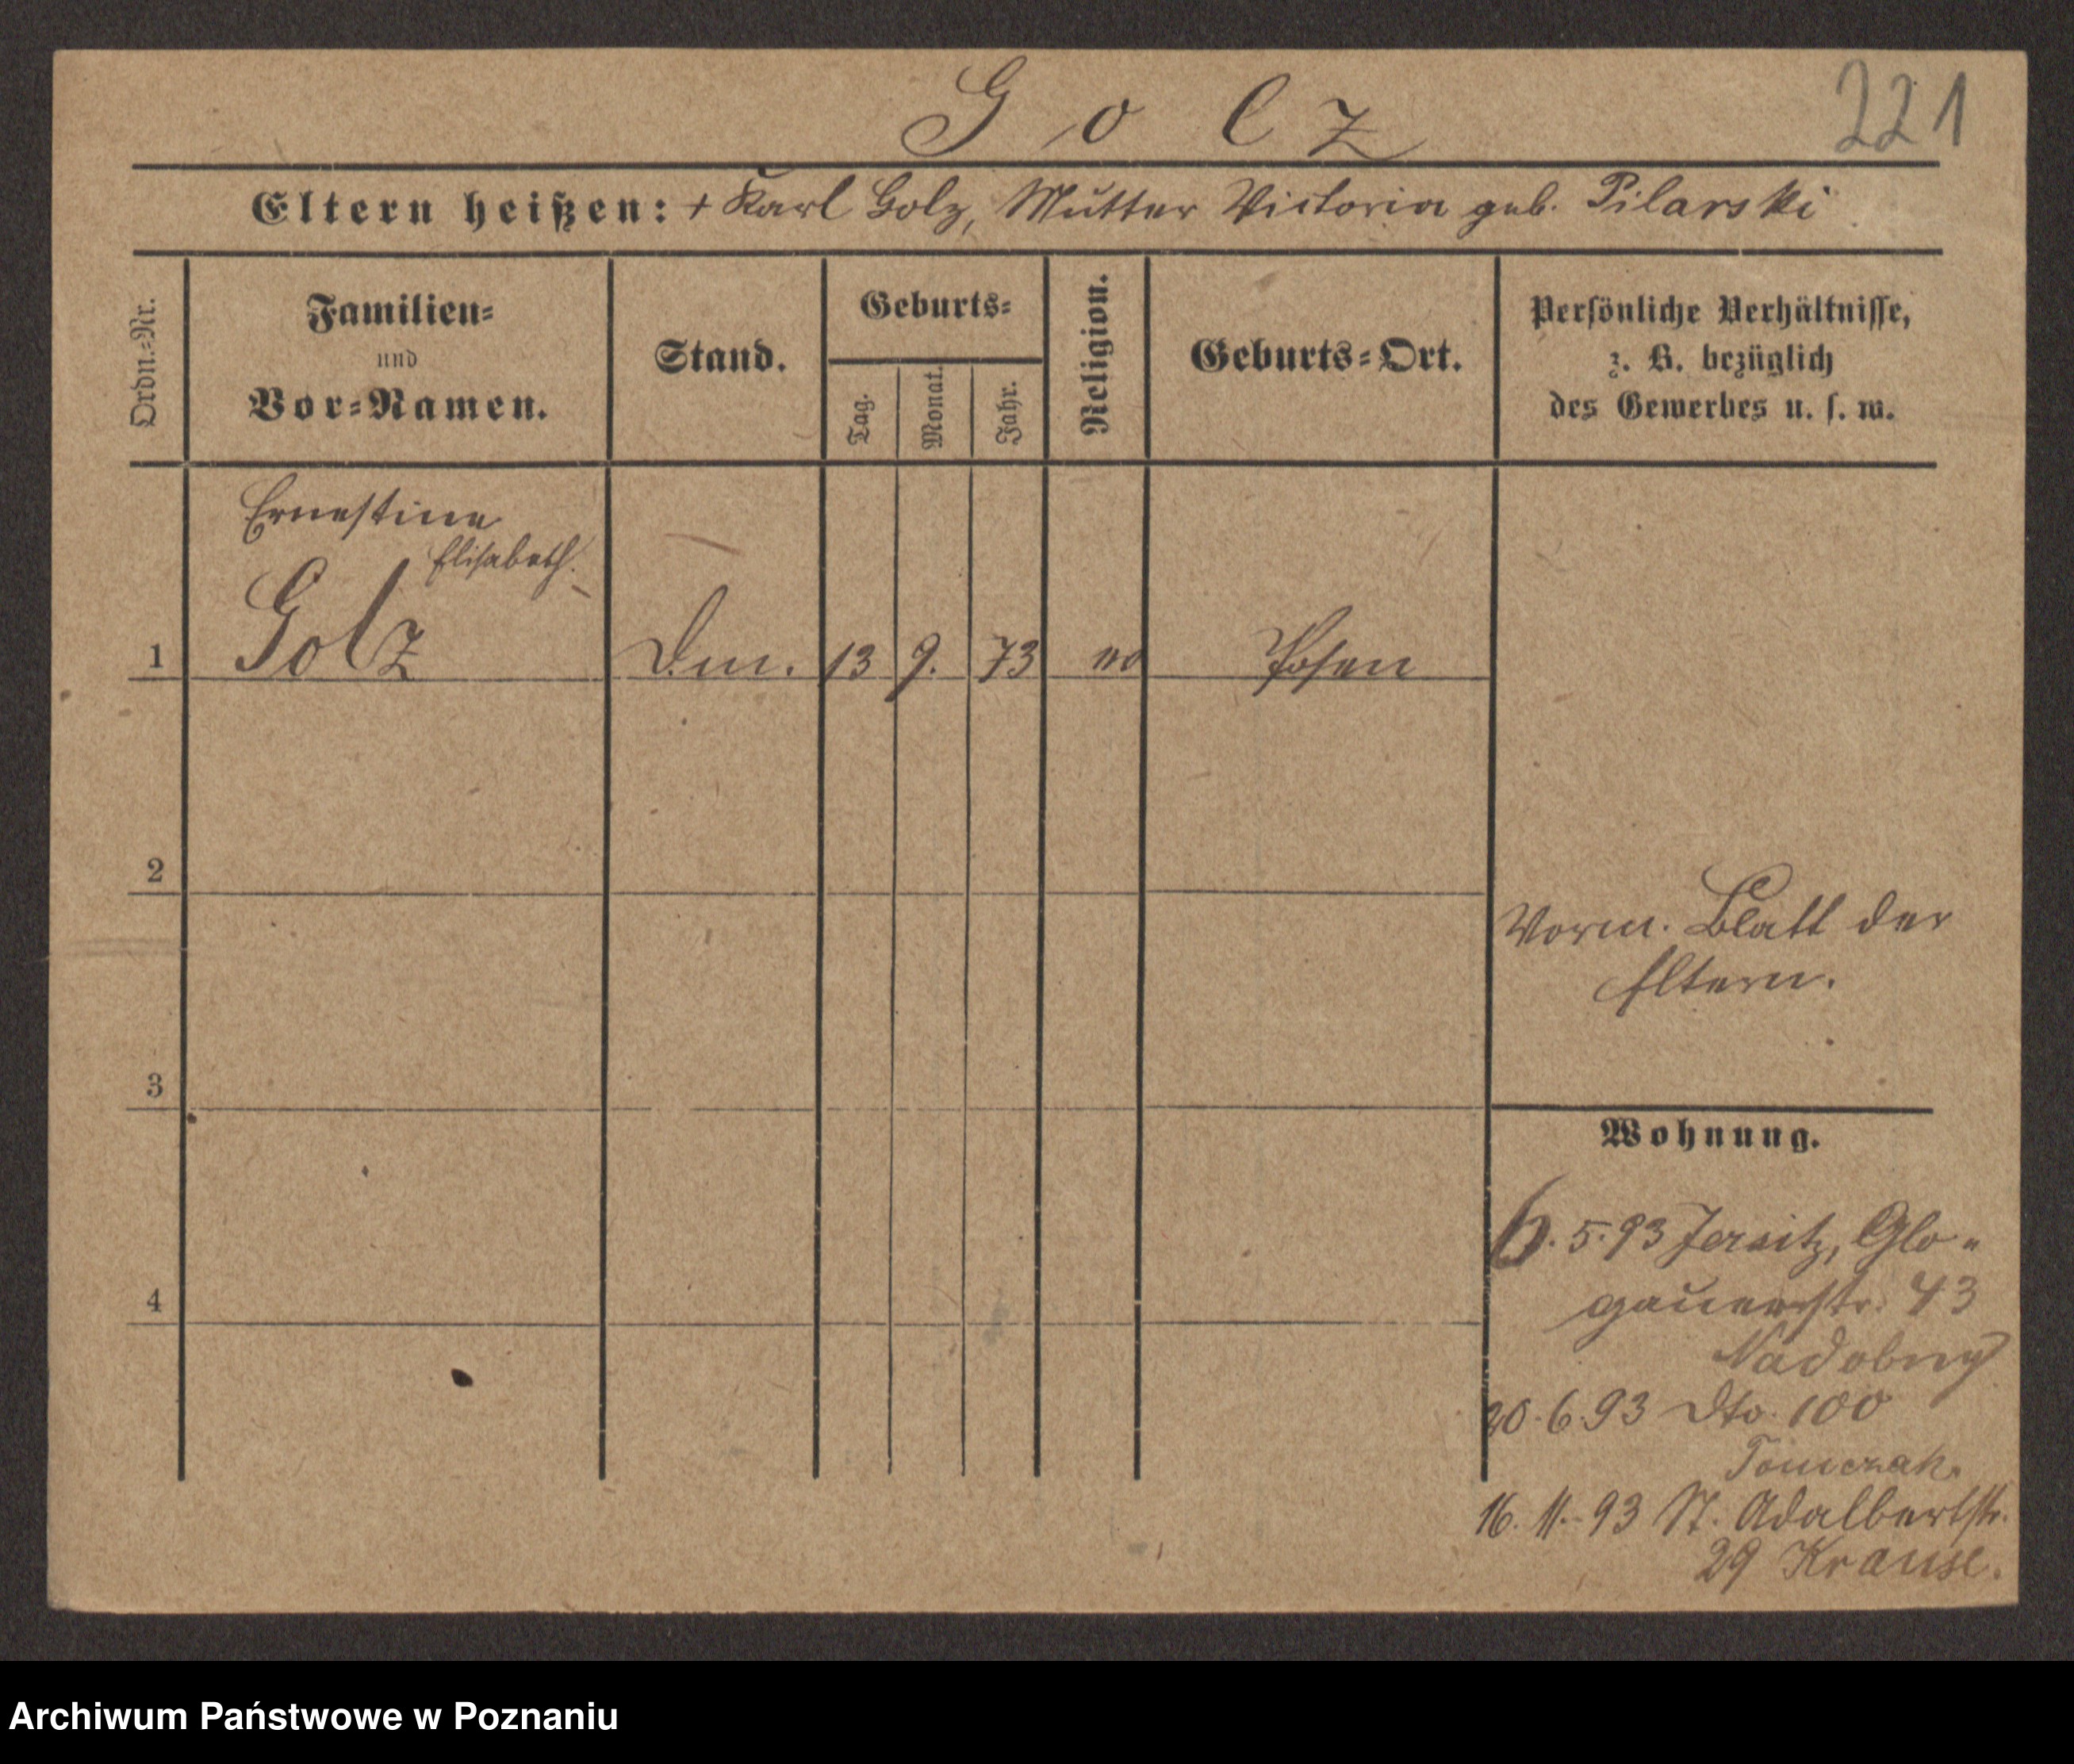 Golz
221
Eltern heißen: + Karl Golz, Mutter Victoria geb. Pilarski
Ordn.-Nr.
Familien-
und
Vor-Namen.
Stand.
Geburts-
Tag.
Monat.
Jahr.
Religion.
Geburts-Ort.
Persönliche Verhältnisse,
z. B. bezüglich
des Gewerbes u. s. w.
Ernestine
Elisabeth.
1 Golz 13 9. 73 Posen
2
3
4
Vorm. Blatt der
Eltern.
Wohnung.
6. 5. 93 Jersitz, Glo-
gauerstr. 43
Nadobny
20. 6. 93 dto. 100
Tomczak.
16. 11. 93 St. Adalbertstr.
29 Krause.
Archiwum Państwowe w Poznaniu